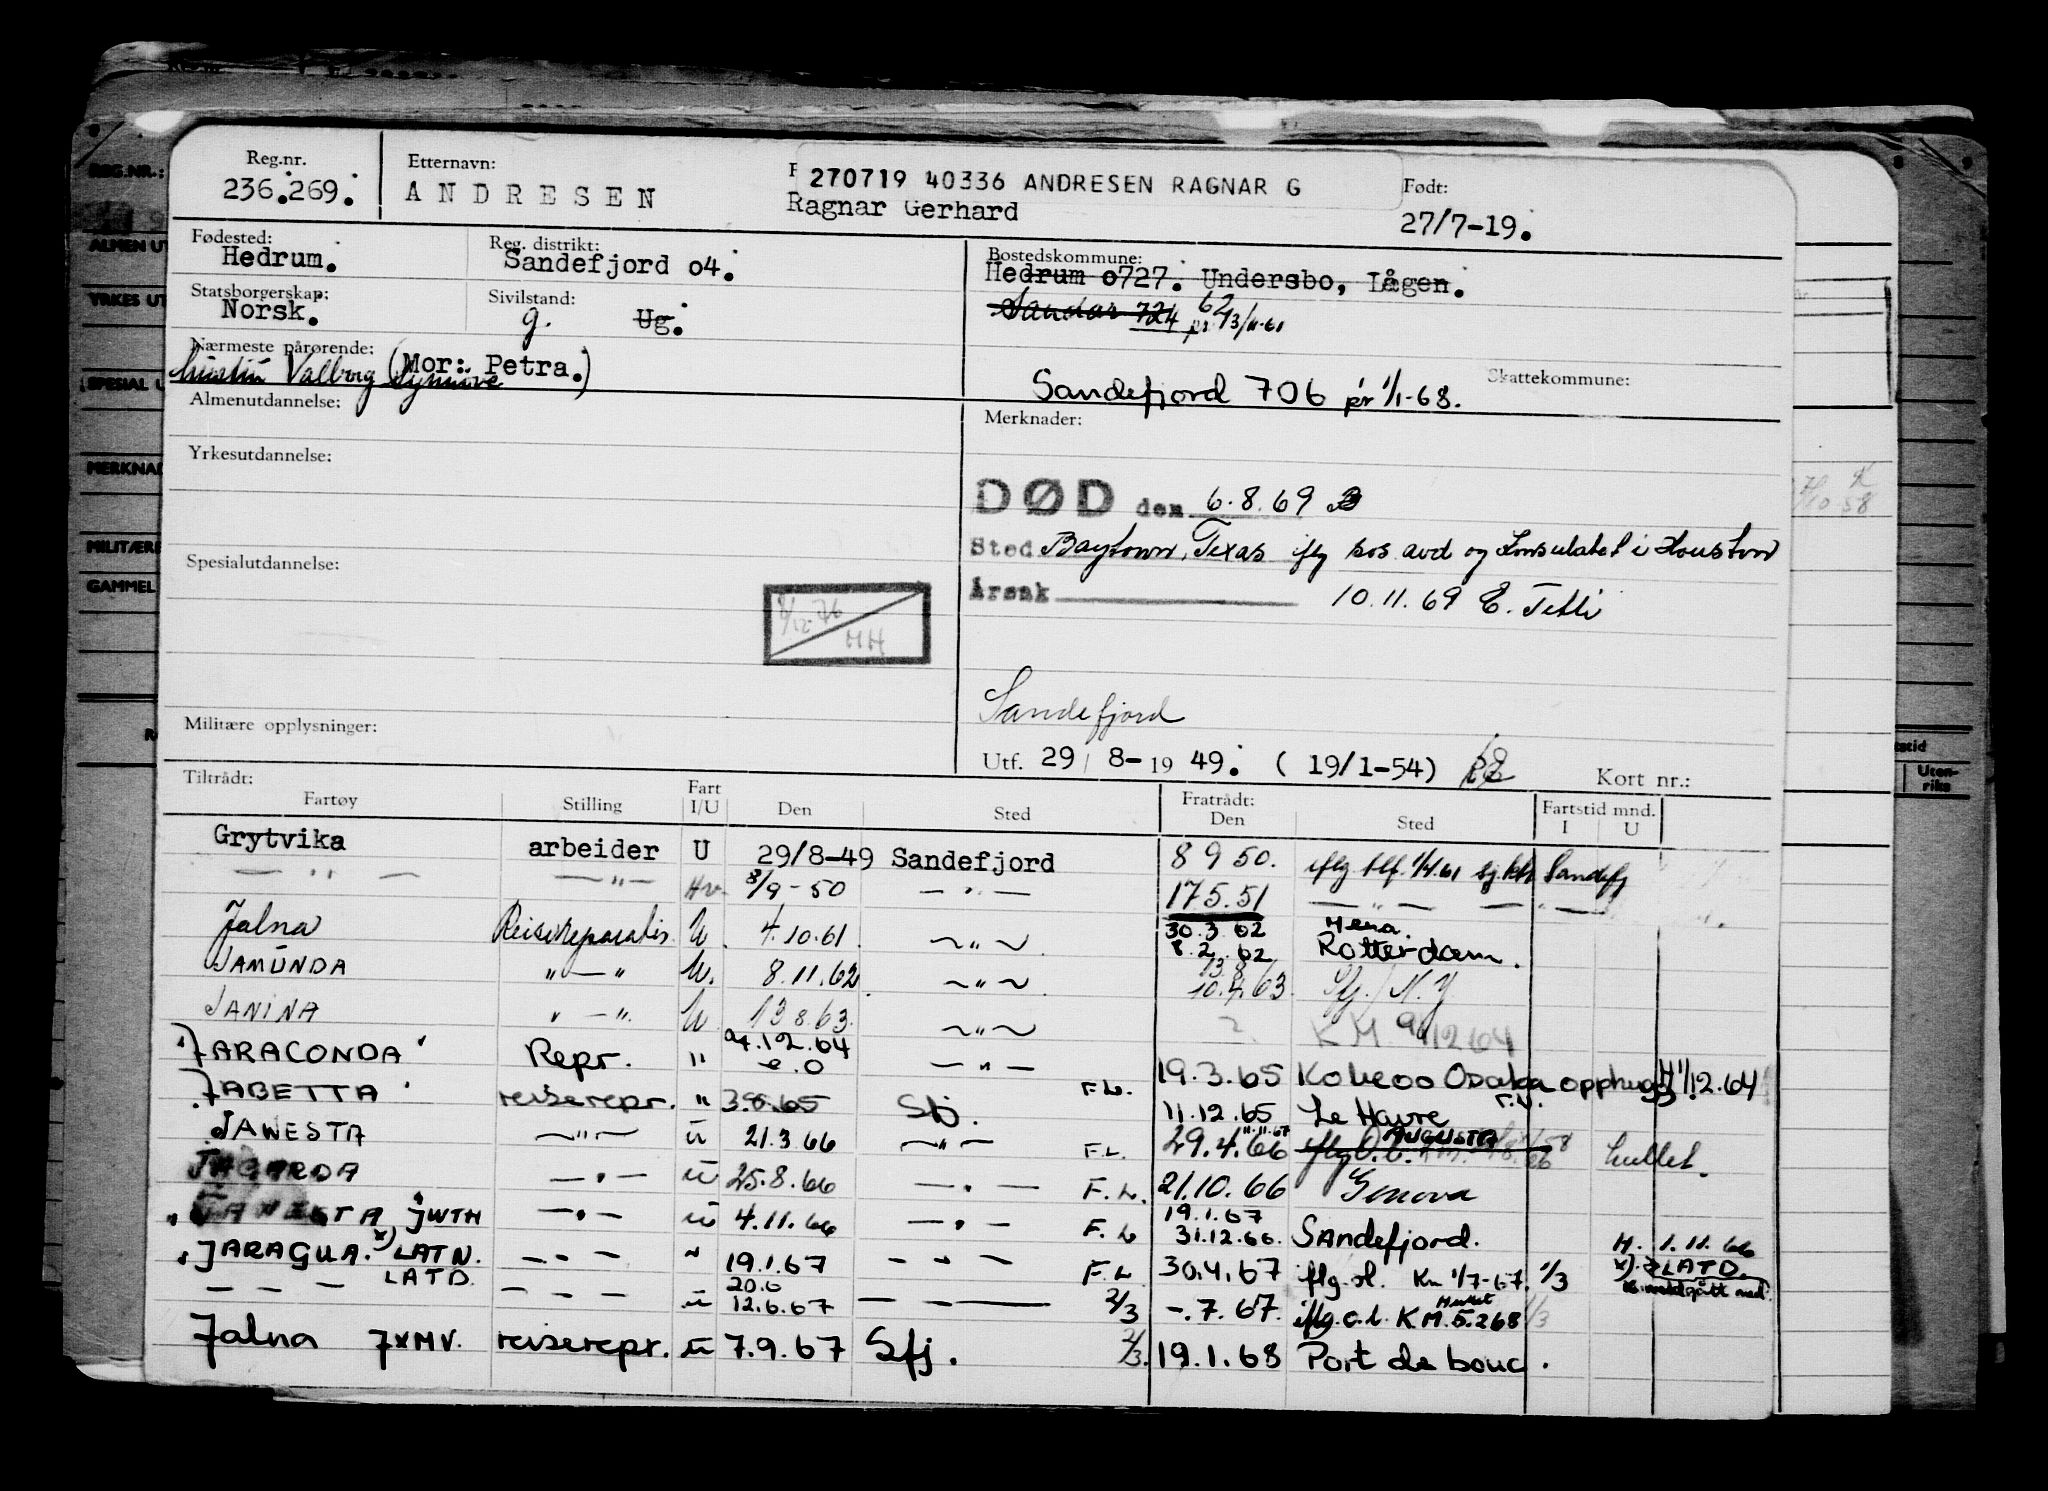 Reg.nr. Etternavn: 270719 40336 ANDRESEN RAGNAR G Født:
236.269. ANDRESEN Ragnar Gerhard 27/7-19.
Fødested: Reg. distrikt: Bostedskommune:
Hedrum. Sandefjord o4. Hedrum o727. Undersbo, Lågen.
Statsborgerskap: Sivilstand: Sandar 724 62
Norsk. g. Ug. pr. 13/11-61
Nærmeste pårørende: (Mor: Petra.) Skattekommune:
Valborg Synnøve Sandefjord 706 pr 1/1-68.
Almenutdannelse: Merknader:
Yrkesutdannelse:
DØD den 6.8.69
Sted Baytown, Texas iflg sos avd og Konsulatet i Houston
Spesialutdannelse: Årsak 10.11.69 E.
1/12-76
HH
Sandefjord
Militære opplysninger: Utf. 29/8-1949. (19/1-54) Kort nr.:
Tiltrådt: Fart Fratrådt: Fartstid mnd.
Fartøy Stilling I/U Den Sted Den Sted I U
Grytvika arbeider U 29/8-49 Sandefjord 8 9 50. iflg tlf. 1/4.61 Sandefj
— " — — " — Hv. 8/9-50 — " — 17.5.51 — " —
Jalna Reisereparatør U 4.10.61. — " — 30.3.62
8.2.62 Rotterdam.
JAMUNDA " — " U. 8.11.62. — " — 13.8.
10.4.63. Sfj./N.Y
JANINA " — " U 13.8.63. — " — ? K M 9/12 64
"JARACONDA" Repr. " 4.12.64 — " — 19.3.65 Kobe oo Osaka opphugg H 1/12.64
JABETTA" reiserepr. " 3.8.65 Sfj. F.L. 11.12.65 Le Havre
JAWESTA — " — u 21.3.66 — " — F.L. 11.11.67
29.4.66 AUGUSTA
JAGARDA — " — u 25.8.66 — " — F.L. 21.10.66 Genova
"JAWESTA JWTH — " — u 4.11.66 — " — F.L 19.1.67
31.12.66. Sandefjord. H. 1.11.66
"JARAGUA. x) LATN. — " — " 19.1.67 — " — F.L 30.4.67 iflg. sl. Km 1/7-67. 1/3 x) LATD.
— — — LATD. — — — u 20.6
12.6.67 — — — 2/3 -.7.67. iflg. o.l. K M. 5.268 1/3
Jalna JXMV. reiserepr. u 7.9.67 Sfj. 2/3. 19.1.68 Port de bouc.
REG.NR.:
ALMEN UT
YRKES UT
SPESIAL U
MERKNAD
MILITÆRE
GAMMEL
Uten-
riks